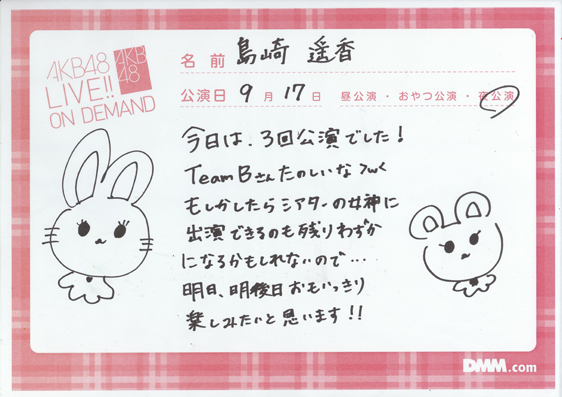 AKB48
LIVE!!
ON DEMAND
AKB
48
名前 島崎 遥香
公演日 9月17日 昼公演・おやつ公演・夜公演
今日は、3回公演でした!
TeamBさんたのしいな
もしかしたらシアターの女神に
出演できるのも残りわずか
になるかもしれないので…
明日、明後日おもいっきり
楽しみたいと思います!!
DMM.com